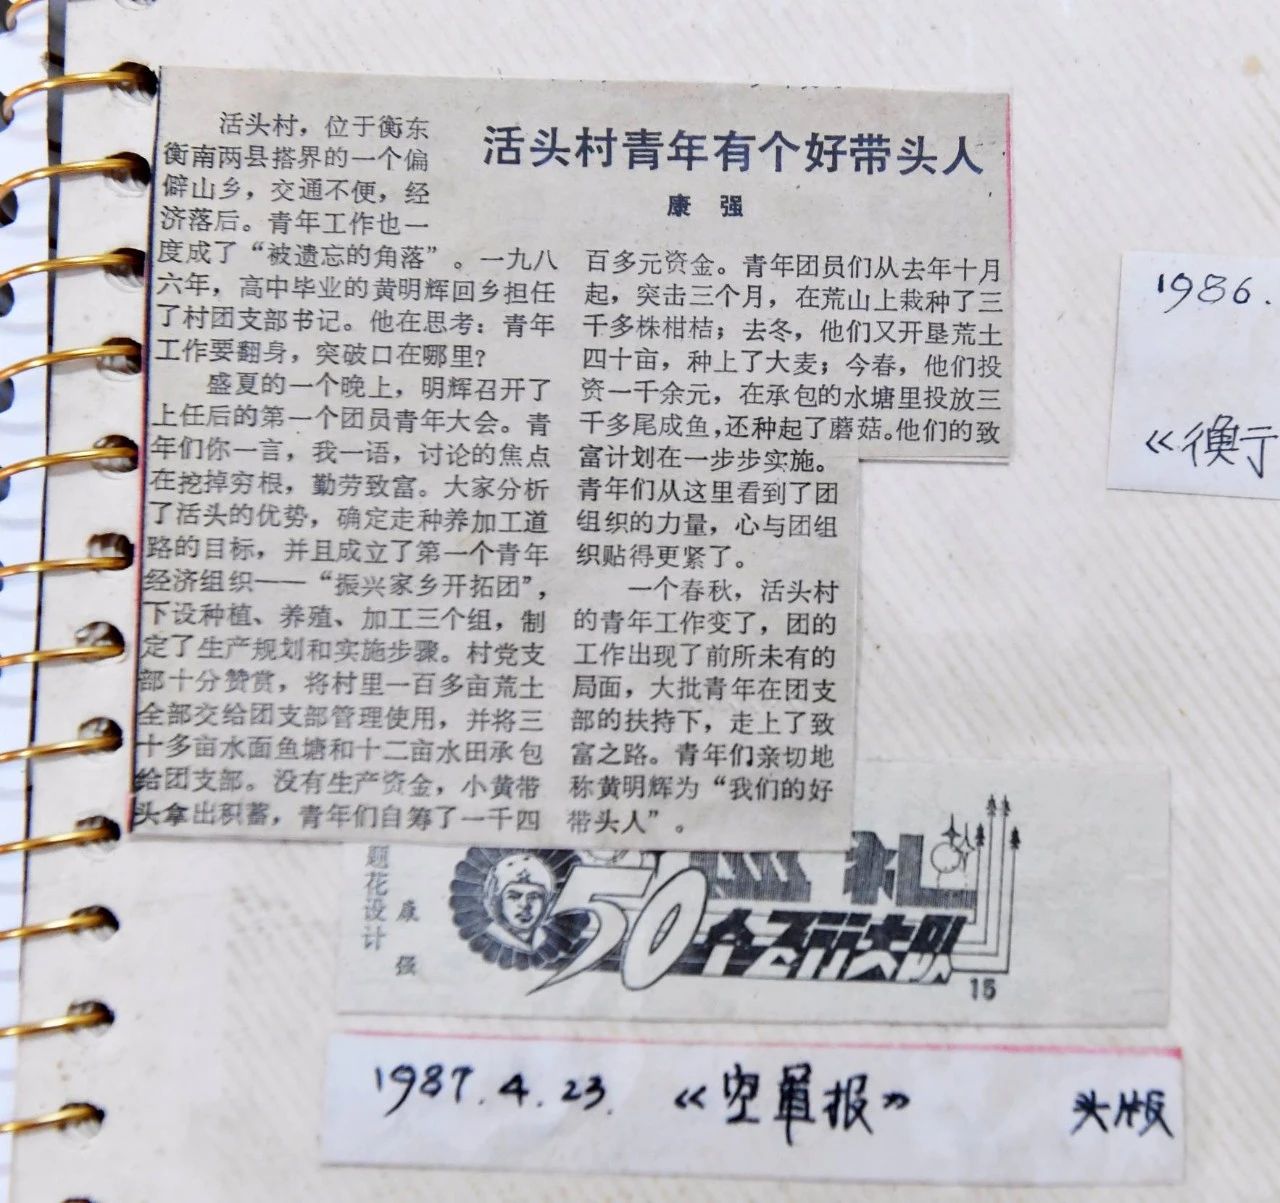 活头村青年有个好带头人
康 强
活头村，位于衡东
衡南两县搭界的一个偏
僻山乡，交通不便，经
济落后。青年工作也一
度成了“被遗忘的角落”。一九八
六年，高中毕业的黄明辉回乡担任
了村团支部书记。他在思考：青年
工作要翻身，突破口在哪里？
盛夏的一个晚上，明辉召开了
上任后的第一个团员青年大会。青
年们你一言，我一语，讨论的焦点
在挖掉穷根，勤劳致富。大家分析
了活头的优势，确定走种养加工道
路的目标，并且成立了第一个青年
经济组织——“振兴家乡开拓团”，
下设种植、养殖、加工三个组，制
定了生产规划和实施步骤。村党支
部十分赞赏，将村里一百多亩荒土
全部交给团支部管理使用，并将三
十多亩水面鱼塘和十二亩水田承包
给团支部。没有生产资金，小黄带
头拿出积蓄，青年们自筹了一千四
百多元资金。青年团员们从去年十月
起，突击三个月，在荒山上栽种了三
千多株柑桔；去冬，他们又开垦荒土
四十亩，种上了大麦；今春，他们投
资一千余元，在承包的水塘里投放三
千多尾成鱼，还种起了蘑菇。他们的致
富计划在一步步实施。
青年们从这里看到了团
组织的力量，心与团组
织贴得更紧了。
一个春秋，活头村
的青年工作变了，团的
工作出现了前所未有的
局面，大批青年在团支
部的扶持下，走上了致
富之路。青年们亲切地
称黄明辉为“我们的好
带头人”。
1986.
《衡
题花设计
康 强
礼
50个飞行大队
15
1987.4.23.《空军报》 头版